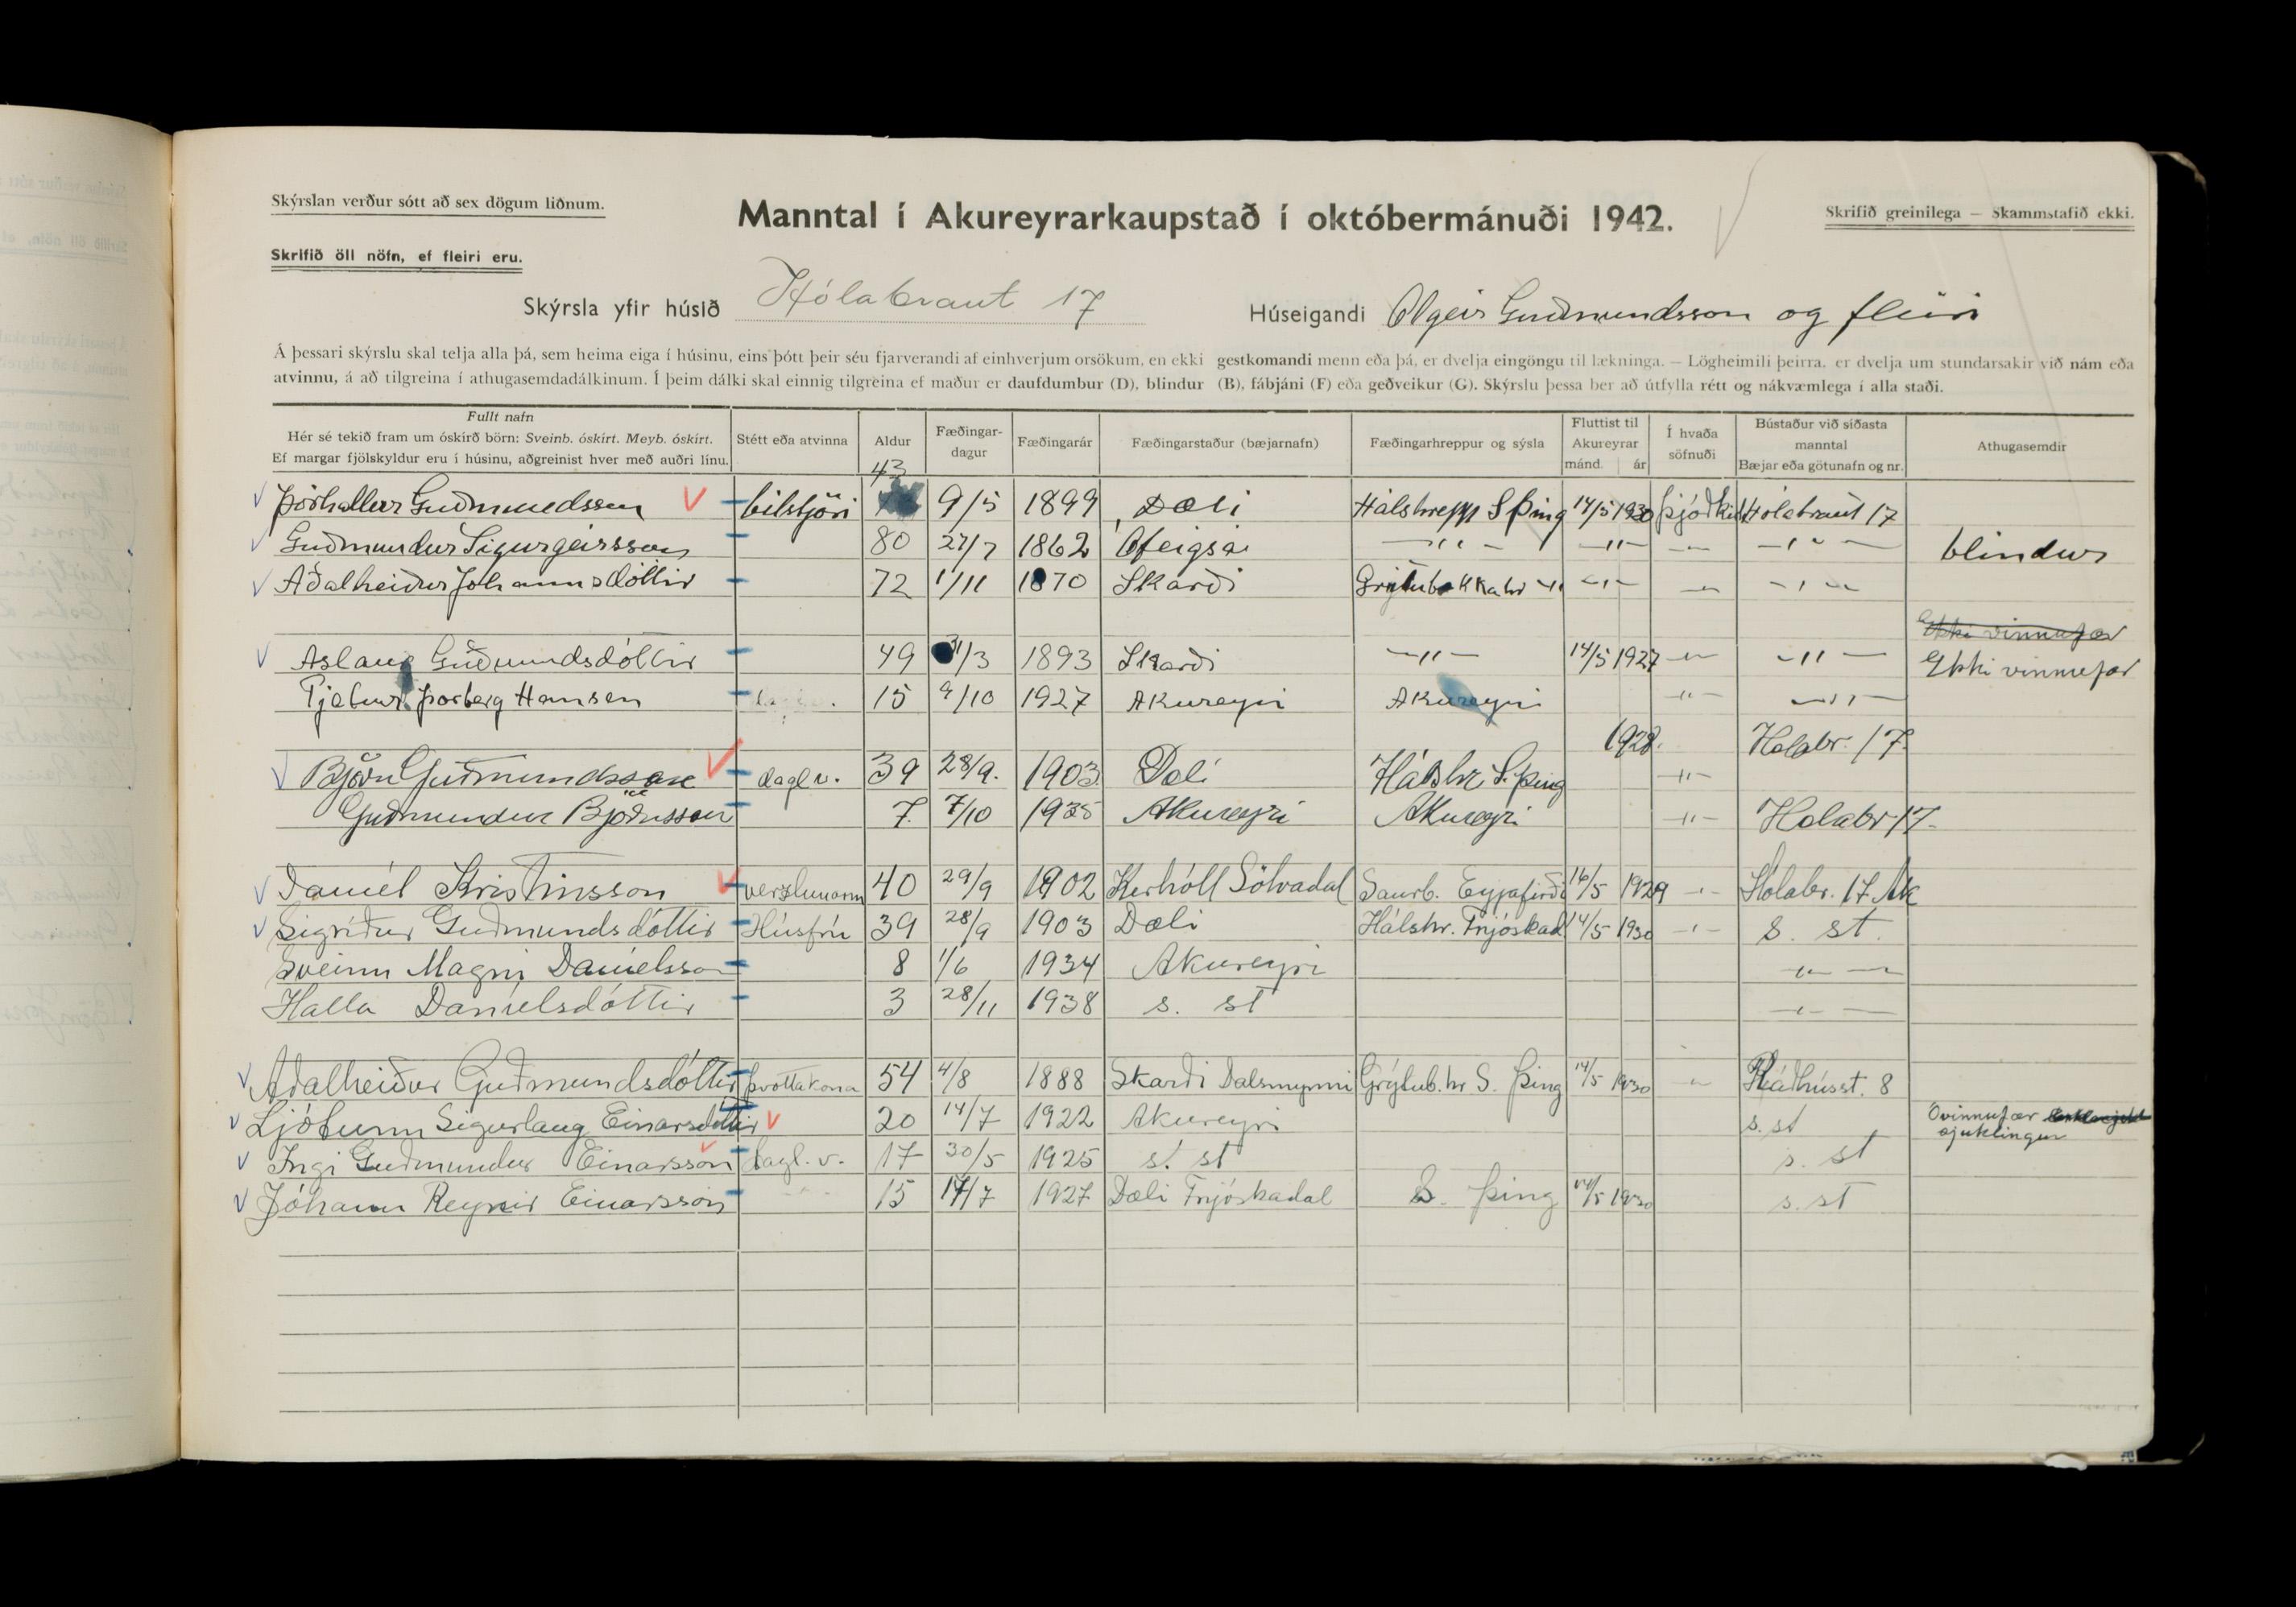 Skýrslan verður sótt að sex dögum liðnum.
Manntal í Akureyrarkaupstað í októbermánuði 1942.
Skrifið greinilega — Skammstafið ekki.
Skrifið öll nöfn, ef fleiri eru.
Skýrsla yfir húsið Hólabraut 17 Húseigandi Olgeir Guðmundsson og fleiri
Á þessari skýrslu skal telja alla þá, sem heima eiga í húsinu, eins þótt þeir séu fjarverandi af einhverjum orsökum, en ekki gestkomandi menn eða þá, er dvelja eingöngu til lækninga. — Lögheimili þeirra, er dvelja um stundarsakir við nám eða
atvinnu, á að tilgreina í athugasemdadálkinum. Í þeim dálki skal einnig tilgreina ef maður er daufdumbur (D), blindur (B), fábjáni (F) eða geðveikur (G). Skýrslu þessa ber að útfylla rétt og nákvæmlega í alla staði.
Fullt nafn
Hér sé tekið fram um óskírð börn: Sveinb. óskírt. Meyb. óskírt.
Ef margar fjölskyldur eru í húsinu, aðgreinist hver með auðri línu.
Stétt eða atvinna
Aldur
Fæðingar-
dagur
Fæðingarár
Fæðingarstaður (bæjarnafn)
Fæðingarhreppur og sýsla
Fluttist til
Akureyrar
mánd. ár
Í hvaða
söfnuði
Bústaður við síðasta
manntal
Bæjar eða götunafn og nr.
Athugasemdir
43
Þórhallur Guðmundsson bílstjóri 9/5 1899 Dæli Hálshrepp S Þing 14/5 1930 Þjóðkirk Hólabraut 17
Guðmundur Sigurgeirsson 80 27/7 1862 Ófeigsá —"— —"— —"— —"— blindur
Aðalheiður Jóhannsdóttir 72 1/11 1870 Skarði Grýtubakkahr —"— —"— —"— —"—
Ekki vinnufær
Aslaug Guðmundsdóttir 49 31/3 1893 Skarði —"— 14/5 1927 —"— —"— Ekki vinnufær
Pjetur Þorberg Hansen 15 9/10 1927 Akureyri Akureyri —"— —"—
1928. Holabr. 17
Björn Guðmundsson dagl v. 39 28/9. 1903 Dæli Hálshr S. Þing —"—
Guðmundur Björnsson 7 7/10 1935 Akureyri Akureyri —"— Holabr 17
Daníel Kristinsson verzlunarm 40 29/9 1902 Kerhóll Sölvadal Saurb. Eyjafirði 16/5 1929 —"— Hólabr. 17 Ak
Sigríður Guðmundsdóttir Húsfrú 39 28/9 1903 Dæli Hálshr. Fnjóskad 14/5 1930 —"— s. st.
Sveinn Magni Daníelsson 8 1/6 1934 Akureyri —"—
Halla Daníelsdóttir 3 28/11 1938 s. st —"—
Aðalheiður Guðmundsdóttir Þvottakona 54 4/8 1888 Skarði Dalsmynni Grýtub. hr S. Þing 14/5 1930 —"— Ráðhússt. 8
Ljótunn Sigurlaug Einarsdóttir 20 14/7 1922 Akureyri s. st Óvinnufær
sjúklingur
Ingi Guðmundur Einarsson dagl. v. 17 30/5 1925 s. st s. st
Jóhann Reynir Einarsson —"— 15 17/7 1927 Dæli Fnjóskadal S. Þing 14/5 1930 s. st